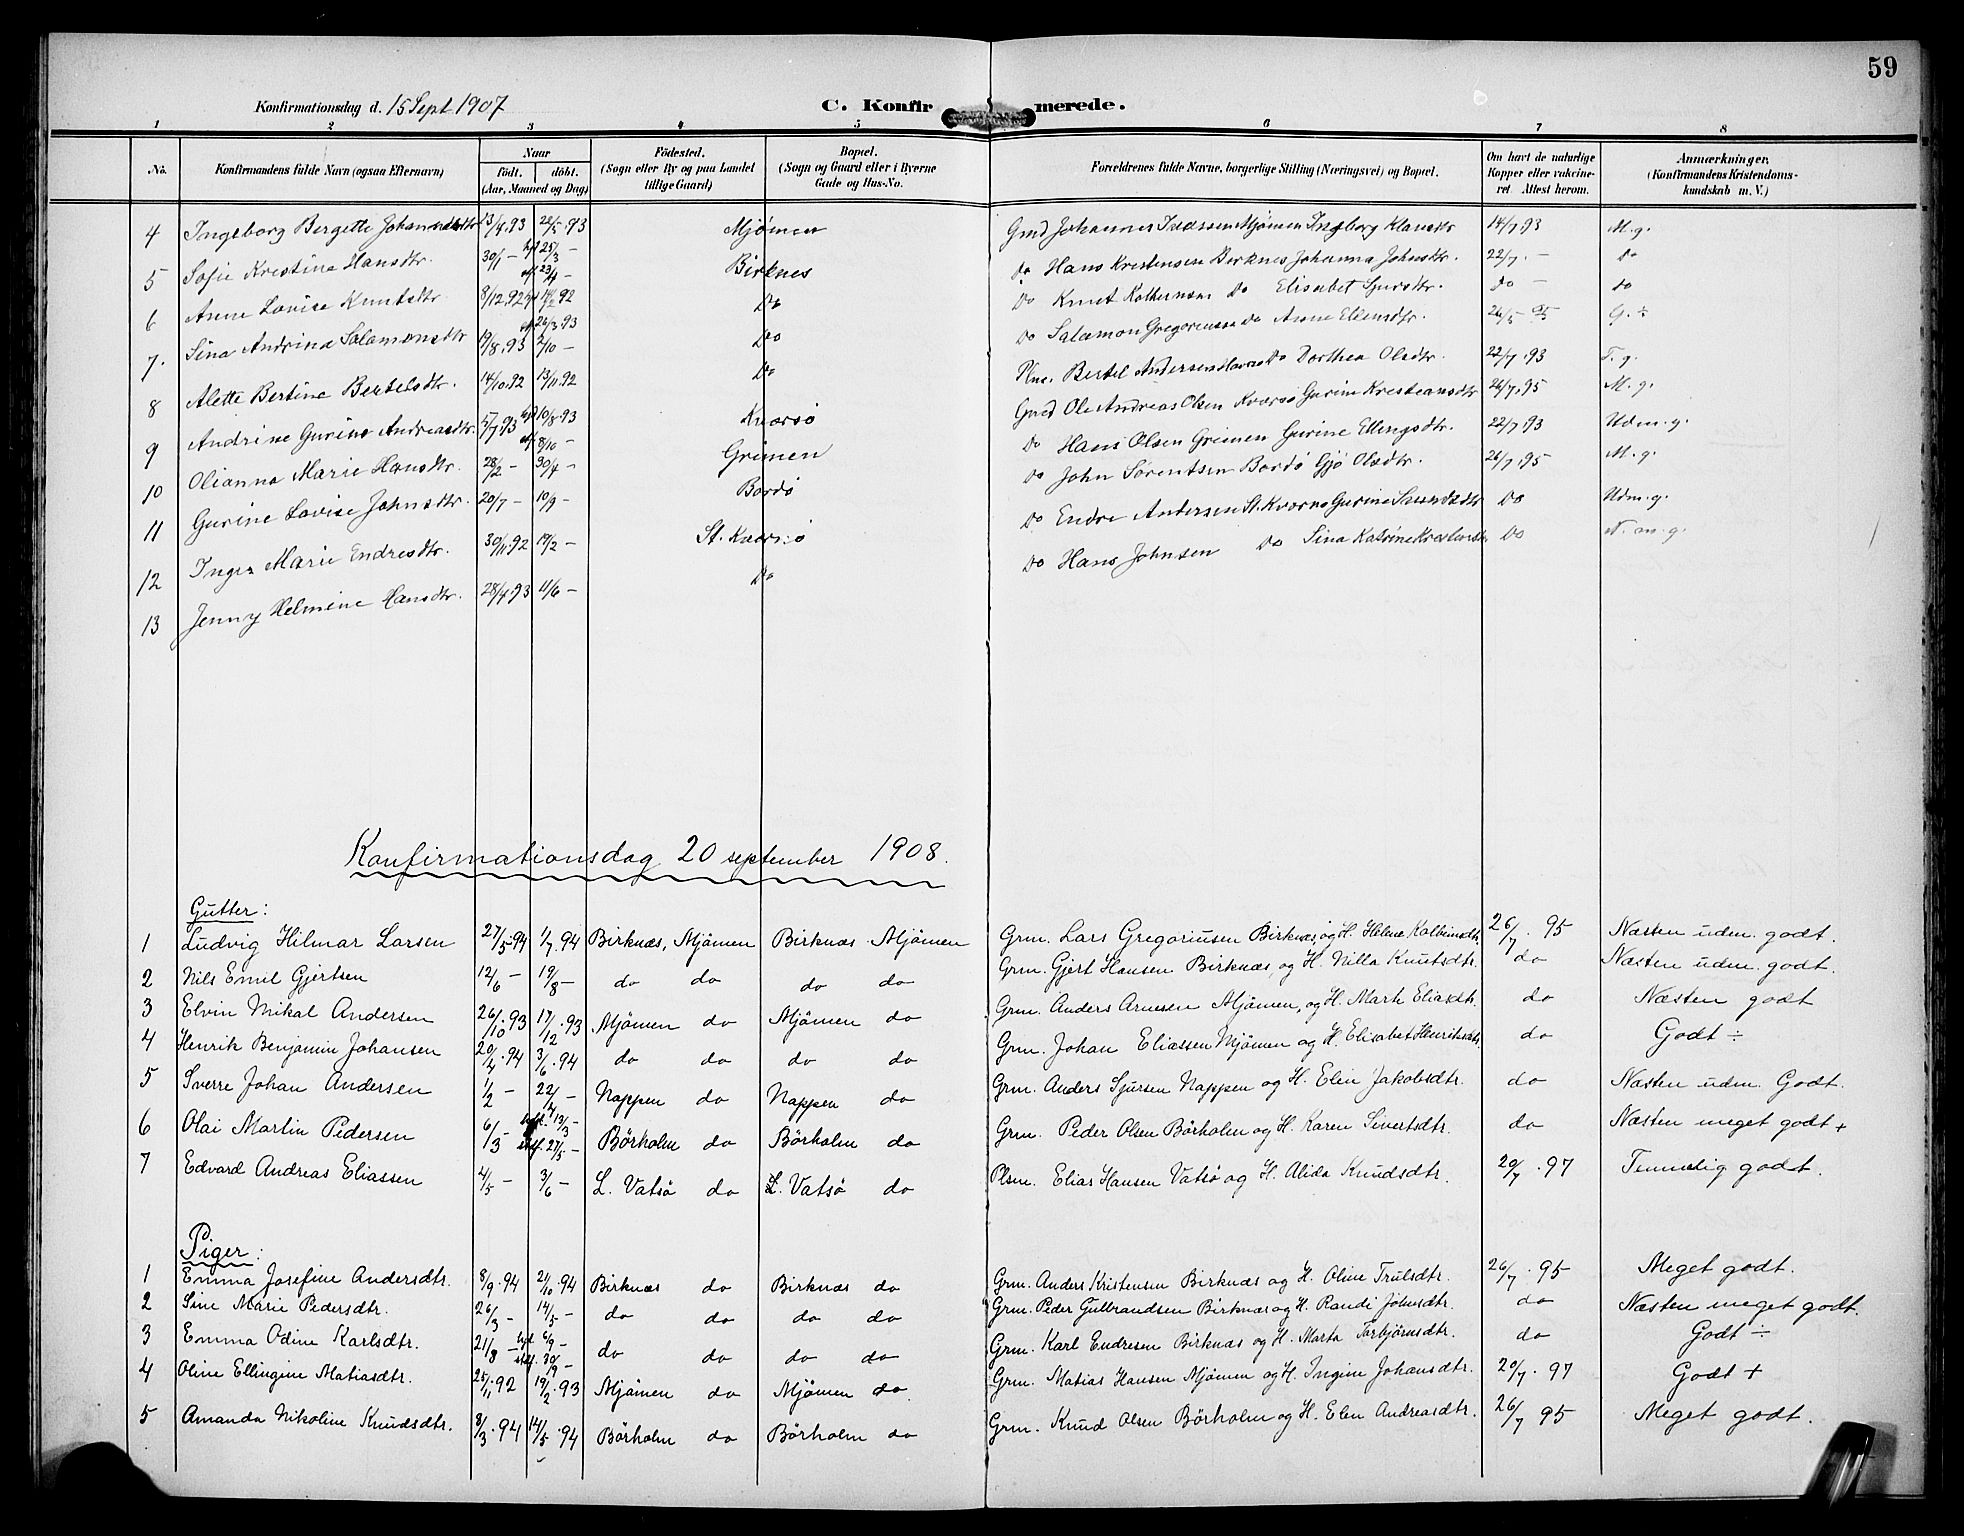 59
Konfirmationsdag d. 15 Sept 1907
C. Konfirmerede.
1 2 3 4 5 6 7 8
No. Konfirmandens fulde Navn (ogsaa Efternavn) Naar født. døbt. (Aar, Maaned og Dag) Fødested. (Sogn eller By og paa Landet tillige Gaard) Bopæl. (Sogn og Gaard eller i Byerne Gade og Hus-No. Forældrenes fulde Navne, borgerlige Stilling (Næringsvei) og Bopæl. Om havt de naturlige Kopper eller vakcineret Attest herom. Anmærkninger. (Konfirmandens Kristendomskundskab m. V.)
4 Ingeborg Bergette Johannesdtr 22/5 .93 Mjømen Gmd Johannes Mjömen Ingeborg 14/7 93 M.g.
5 Sofie Kristine Hansdtr. 30/1 - Birknes do Hans Kristensen Birknes Johanna Johnsdtr. 22/7. - do
6 Anne Lovise Knutsdtr 8/12.92 Do Do Knut Do Elisabet Sjursdtr. do - do
7. Sina Andrina Salamonsdtr 19/8.93 2/10 - Do Do Salamon Gregoriussen do Anne Ellensdtr. 26/5 95 G. ÷
8 Alette Bertine Bertelsdtr. 14/10.92 13/11.92 Do Bertel Andersen Do Dorthea Olsdtr. 22/7.93 T.g.
9 Andrine Gurine Andreasdtr. 17/7.93 10/8.93 Kværsø Gmd Ole Andreas Olsen Kværsø Gurine Kristiansdtr 26/7.95 M.g.
10 Olianna Marie Hansdtr. 28/2 - 30/4 - Grimen Do Hans Olsen Grimen Gurine Ellingsdtr. 22/7 93 Udm.g.
11 Gurine Lovise Johnsdtr. 20/7 - 10/9 - Bordø Do John Sörentsen Bordö Gjø Olsdtr. 26/7.95 M.g.
12 Inger Marie Endresdtr. 30/11.92 19/2 - St. Kværsø Do Endre Andersen St. Gurine Do Udm.g.
13 Jenny Helmine Hansdtr. 28/4.93 11/6 - Do Do Hans Johnsen Do Sina Katrine Do N. m.g.
Konfirmationsdag 20 september 1908.
Gutter:
1 Ludvig Hilmar Larsen 27/5.94 1/7.94 Birknæs, Mjömen Birknæs Mjömen Grm. Lars Gregoriusen Birknæs, og H. Helene Kolbeinsdtr. 26/7. 95 Næsten udm. godt.
2 Nils Emil Gjertsen 12/6 - 19/8 - do do do do Grm. Gjert Hansen Birknæs, og H. Nilla Knutsdtr. do Næsten udm. godt.
3 Elvin Mikal Andersen 26/10.93 17/12.93 Mjömen do Mjömen do Grm. Anders Arnesen Mjömen, og H. Marte Eliasdtr. do Næsten godt
4 Henrik Benjamin Johansen 20/4.94 3/6.94 do do do do Grm. Johan Eliassen Mjömen og H. Elisabet Henriksdtr. do Godt ÷
5 Sverre Johan Andersen 1/2 - 22/4 - Nappen do Nappen do Grm. Anders Sjursen Nappen og H. Elen Jakobsdtr. do Næsten udm. Godt.
6 Olai Martin Pedersen 6/3 - 13/3 - 27/5 - Börholm do Börholm do Grm. Peder Olsen Börholm og H. Karen Sivertsdtr. do Næsten meget godt +
7 Edvard Andreas Eliassen 4/5 - 3/6 - L. Vatsö do L. Vatsö do Plsm. Elias Hansen Vatsö og H. Alida Knudsdtr. 20/7. 97 Temmelig godt.
Piger:
1 Emma Josefine Andersdtr. 8/9.94 21/10.94 Birknæs do Birknæs do Grm. Anders Kristensen Birknæs og H. Oline Trulsdtr. 26/7. 95 Meget godt.
2 Sine Marie Pedersdtr. 26/3 - 14/5 - do do do do Grm. Peder Gulbrandsen Birknæs og H. Randi Johnsdtr. do Næsten meget godt.
3 Emma Odine Karlsdtr. 21/8 - 6/9 - 30/9 - do do do do Grm. Karl Endresen Birknæs og H. Marta Torbjörnsdtr. do Godt ÷
4 Oline Ellingine Matiasdtr. 25/11.92 19/2.93 Mjömen do Mjömen do. Grm. Matias Hansen Mjömen og H. Ingine Johansdtr. 20/7. 97 Godt +
5 Amanda Nikoline Knudsdtr. 8/3.94 14/5.94 Börholm do Börholm do Grm. Knud Olsen Börholm og H. Elen Andreasdtr. 26/7 95 Meget godt.